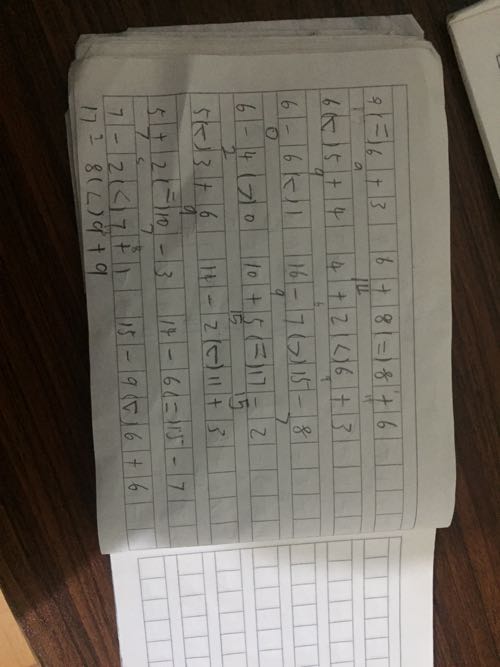 9(=)6+3 6+8(=)8+6
6(<)5+4 4+2(<)6+3
6-6(<)1 16-7(>)15-8
6-4(>)0 10+5(=)17-2
5(<)3+6 14-2(<)11+3
5+2(=)10-3 14-6(=)15-7
7-2(<)7+1 15-9(<)6+6
17-8(<)9+9